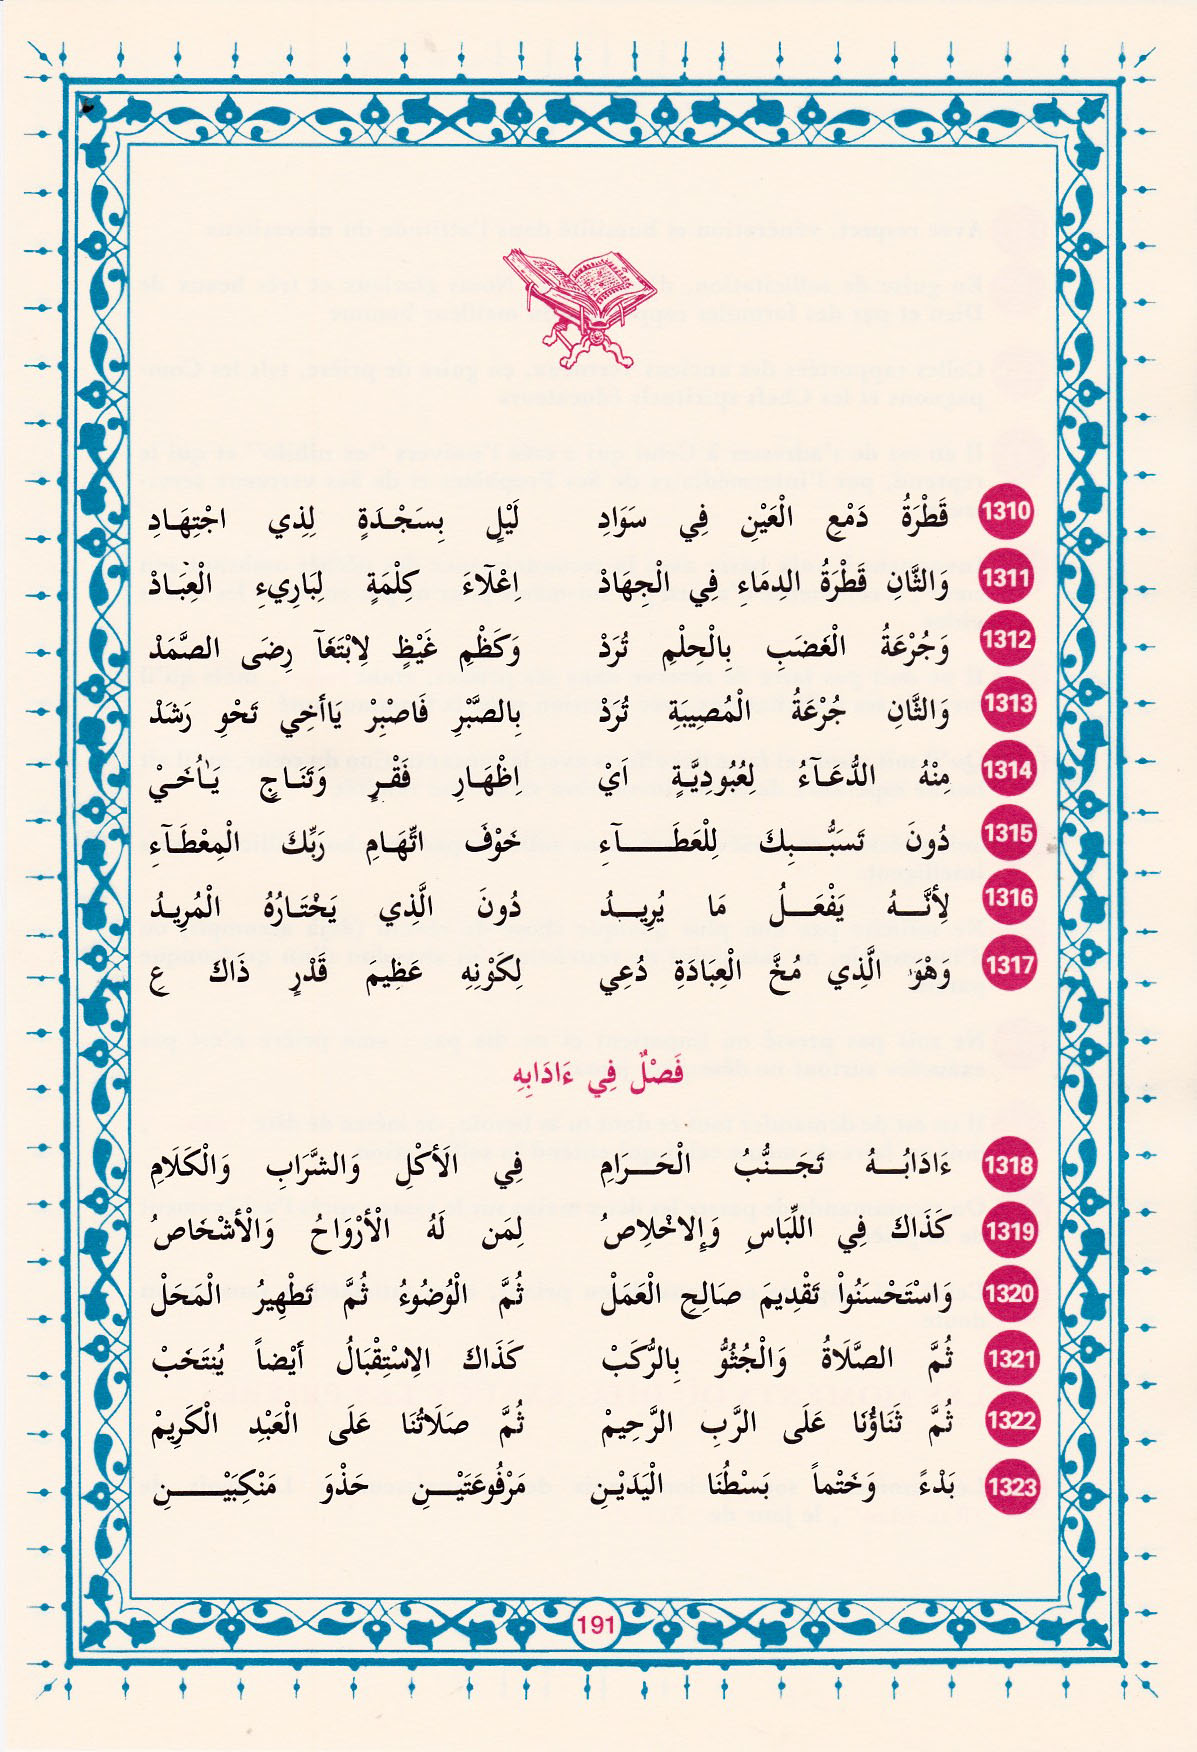 1310 قَطْرَةُ دَمْعِ الْعَيْنِ فِي سَوَادِ لَيْلٍ بِسَجْدَةٍ لِذِي اجْتِهَادِ
1311 وَالثَّانِ قَطْرَةُ الدِمَاءِ فِي الْجِهَادْ اِعْلَآءَ كِلْمَةٍ لِبَارِيءِ الْعِبَادْ
1312 وَجُرْعَةُ الْغَضَبِ بِالْحِلْمِ تُرَدْ وَكَظْمِ غَيْظٍ لِابْتَغَآ رِضَى الصَّمَدْ
1313 وَالثَّانِ جُرْعَةُ الْمُصِيبَةِ تُرَدْ بِالصَّبْرِ فَاصْبِرْ يَاأَخِي تَحْوِ رَشَدْ
1314 مِنْهُ الدُّعَآءُ لِعُبُودِيَّةٍ اَيْ اِظْهَارِ فَقْرٍ وَتَنَاجٍ يَاُخَيْ
1315 دُونَ تَسَبُّبِكَ لِلْعَطَآءِ خَوْفَ اتِّهَامِ رَبِّكَ الْمِعْطَآءِ
1316 لِأَنَّهُ يَفْعَلُ مَا يُرِيدُ دُونَ الَّذِي يَخْتَارُهُ الْمُرِيدُ
1317 وَهْوَ الَّذِي مُخَّ الْعِبَادَةِ دُعِي لِكَوْنِهِ عَظِيمَ قَدْرٍ ذَاكَ عِ
فَصْلٌ فِي ءَادَابِهِ
1318 ءَادَابُهُ تَجَنُّبُ الْحَرَامِ فِي الَأكْلِ وَالشَّرَابِ وَالْكَلَامِ
1319 كَذَاكَ فِي اللِّبَاسِ وَإِلاخْلِاصُ لِمَن لَهُ الْأرْوَاحُ وَالْأشْخَاصُ
1320 وَاسْتَحْسَنُواْ تَقْدِيمَ صَالِحِ الْعَمَلْ ثُمَّ الْوُضُوءُ ثُمَّ تَطْهِيرُ الْمَحَلْ
1321 ثُمَّ الصَّلَاةُ وَالْجُثُوُّ بِالرُّكَبْ كَذَاكَ الِاسْتِقْبَالُ أَيْضاً يُنتَخَبْ
1322 ثُمَّ ثَنَاؤُنَا عَلَى الرَّبِ الرَّحِيمْ ثُمَّ صَلَاتُنَا عَلَى الْعَبْدِ الْكَرِيمْ
1323 بَدْءً وَخَتْماً بَسْطُنَا الْيَدَيْنِ مَرْفُوعَتَيْنِ حَذْوَ مَنْكِبَيْنِ
191